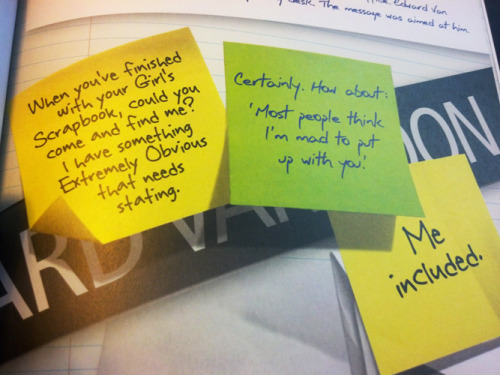 Edward Van
desk. The message was aimed at him.
When you've finished
with your Girl's
Scrapbook, could you
come and find me?
I have something
Extremely Obvious
that needs
stating.
Certainly. How about:
'Most people think
I'm mad to put
up with you.'
ARD VAN
DON
Me
included.